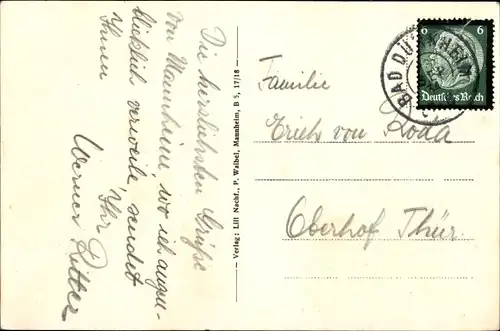 Die herzlichsten Grüße
von Mannheim, wo ich augen-
blicklich verweile sendet
Ihnen
Ihr
Werner Ritter
Verlag: Lill Nachf., P. Waibel, Mannheim, B 5, 17/18
Familie
Erich von Roda
Oberhof Thür.
BAD DÜRKHEIM
6 6
Deutsches Reich